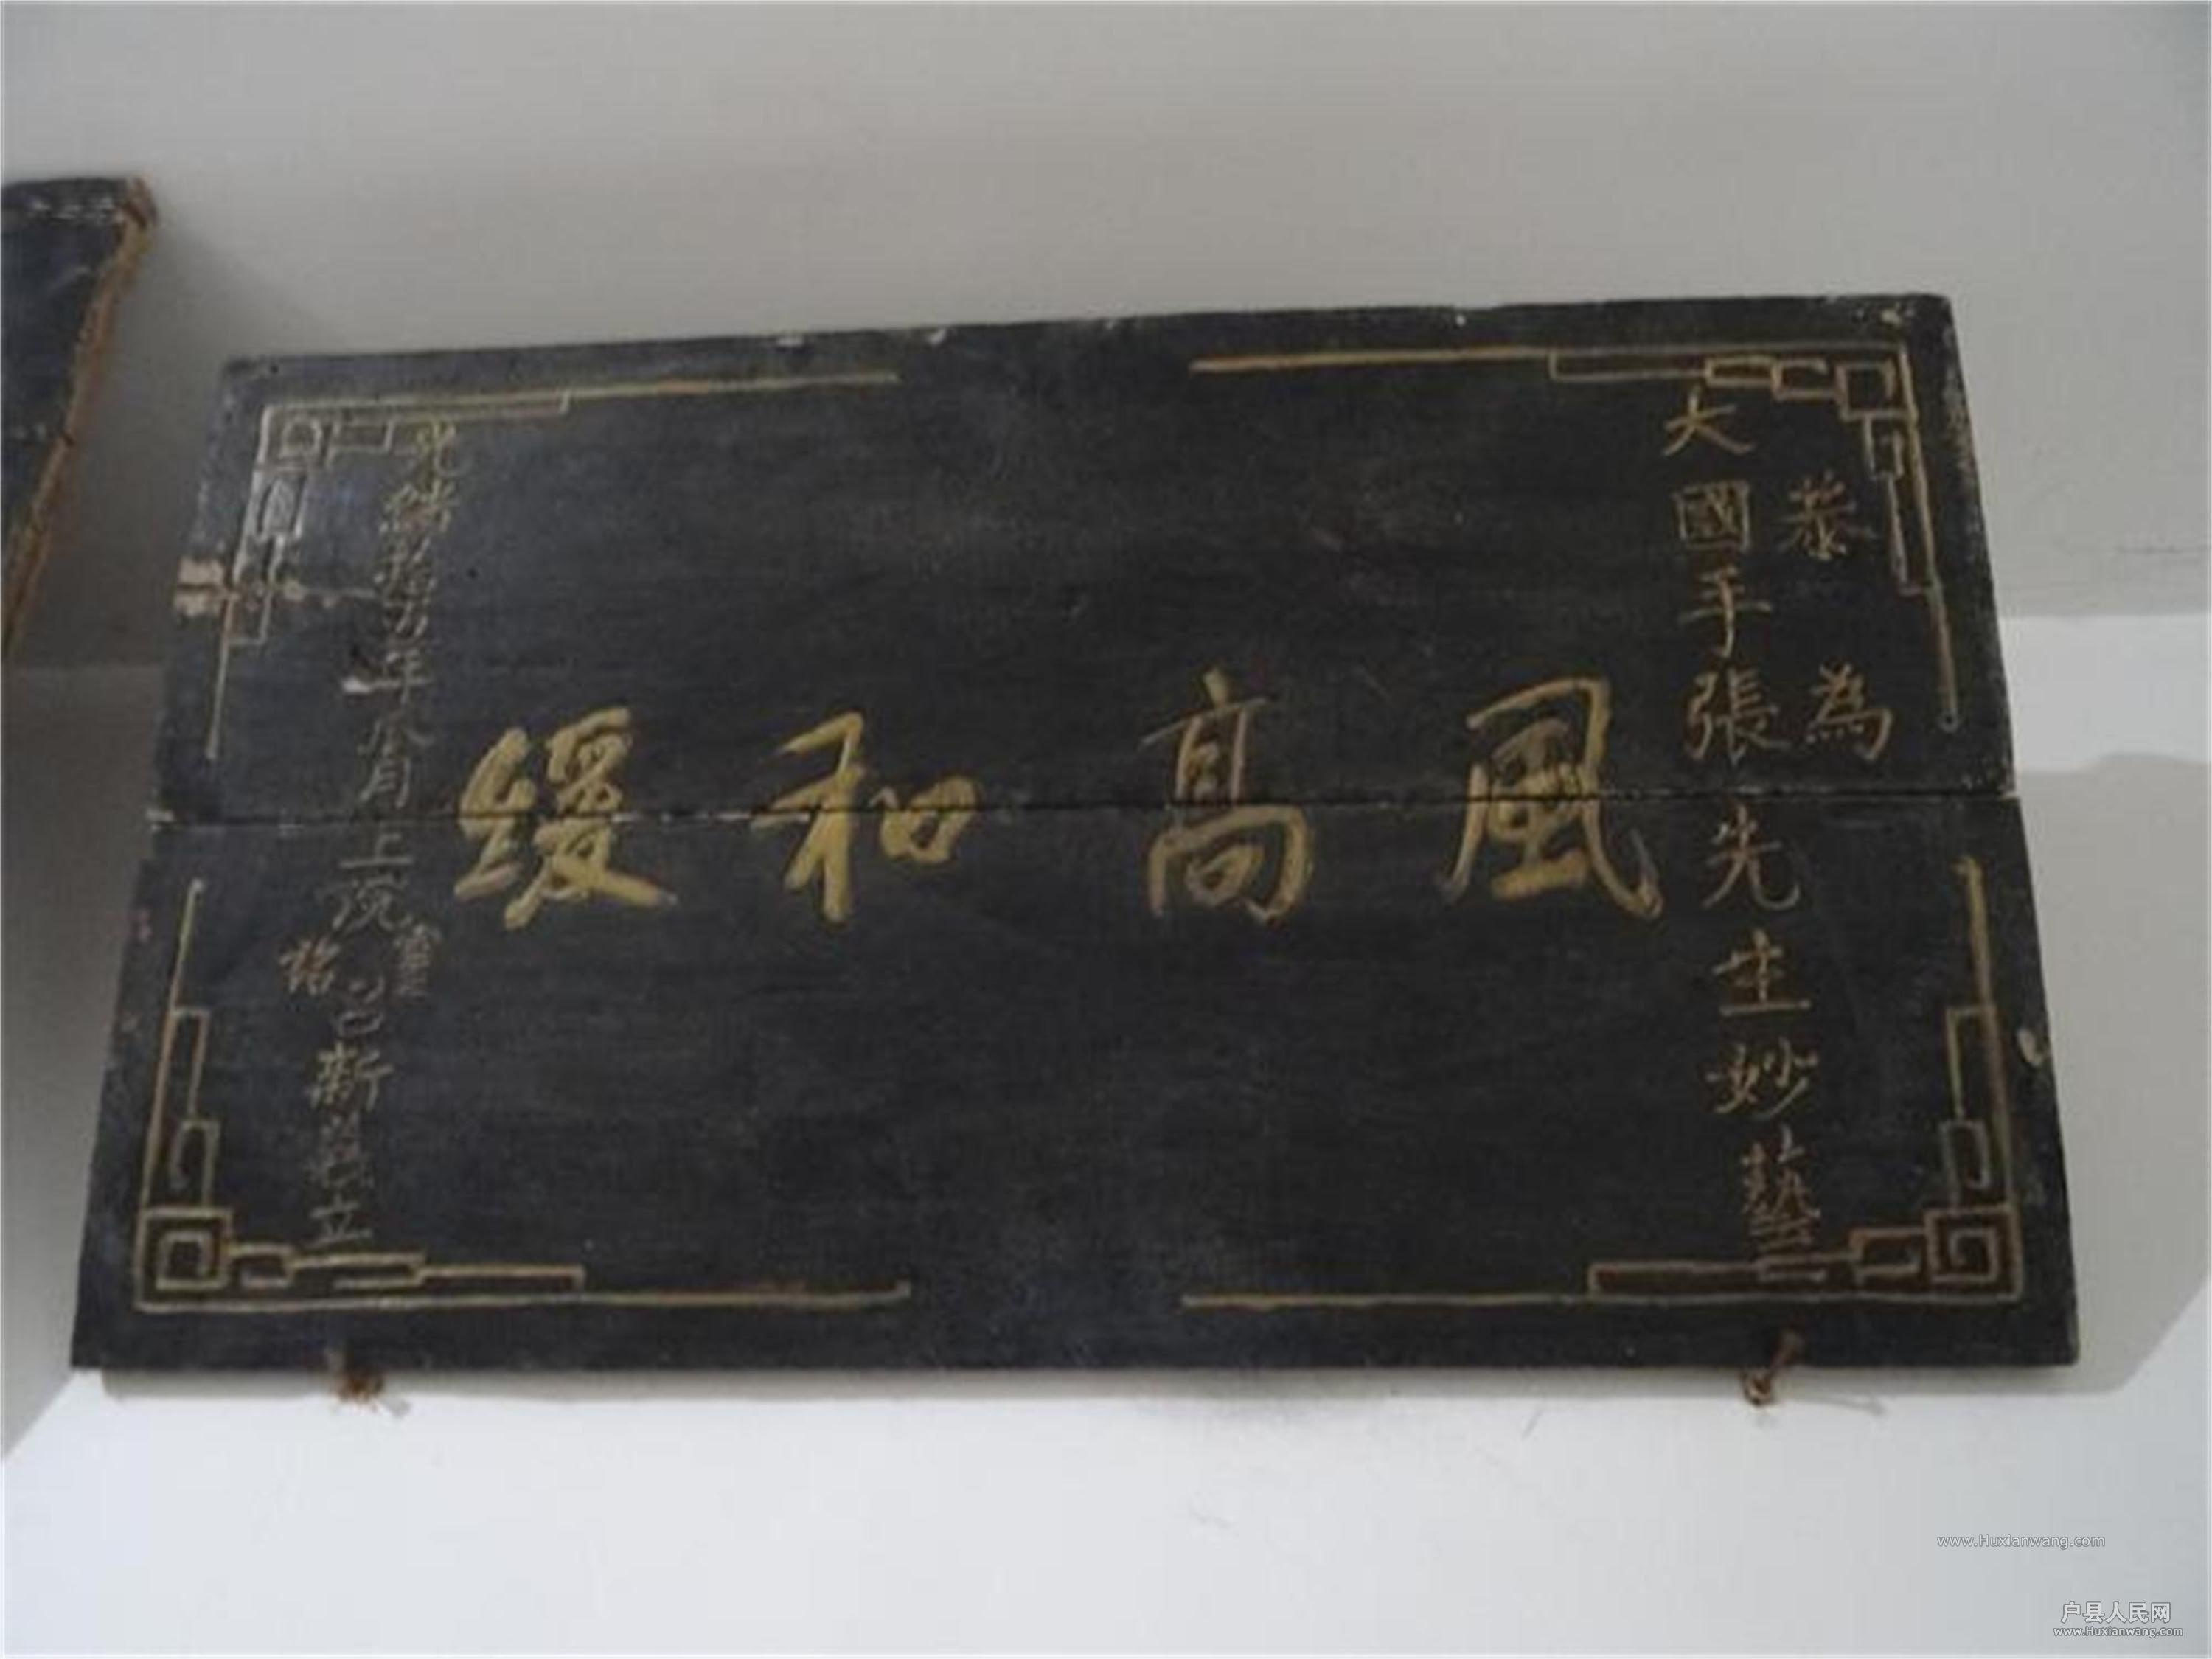 恭為
大國手張先生妙藝
風高和緩
光緒
年
月上浣
立
www.Huxianwang.com
户县人民网
www.Huxianwang.com